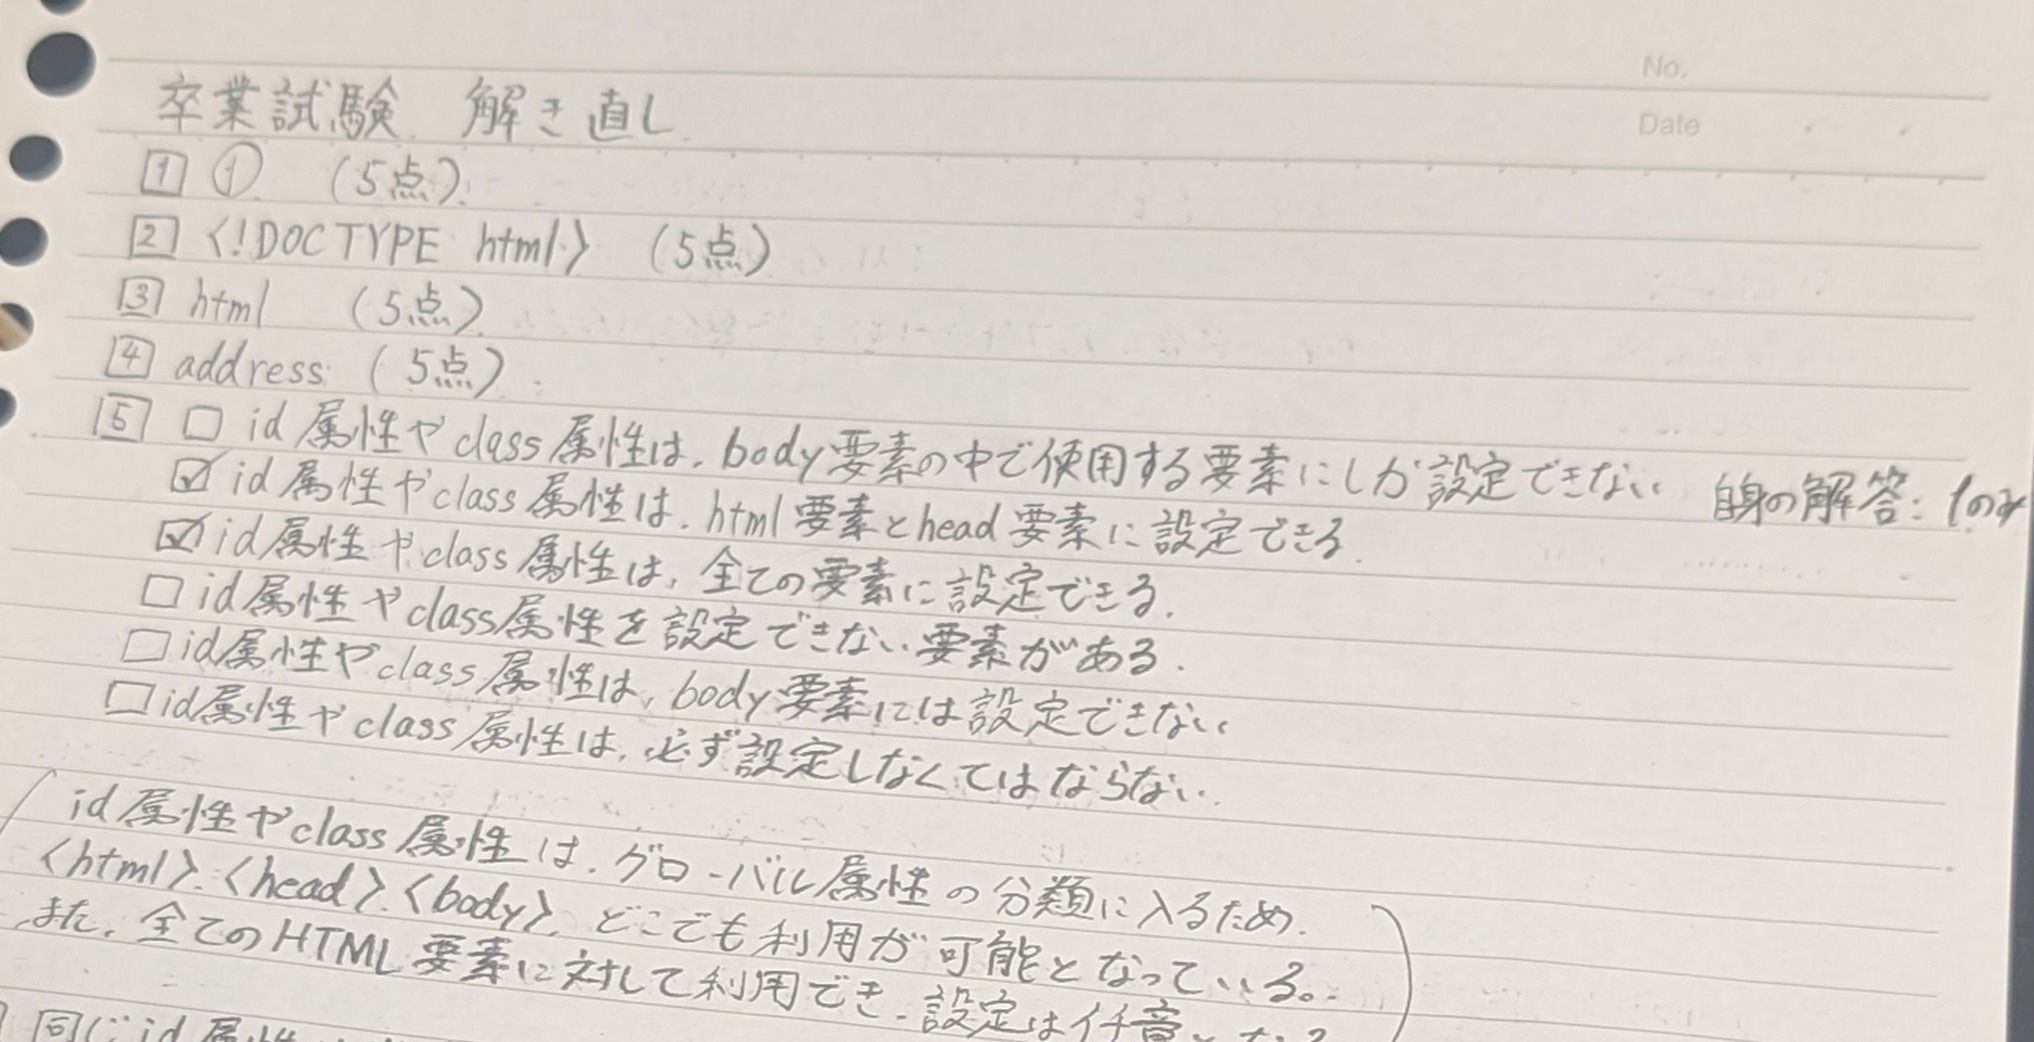 No.
Date
卒業試験 解き直し
1 ① (5点)
2 <!DOCTYPE html> (5点)
3 html (5点)
4 address (5点)
5 □ id属性やclass属性は、body要素の中で使用する要素にしか設定できない 自身の解答：1のみ
☑ id属性やclass属性は、html要素とhead要素に設定できる
☑ id属性やclass属性は、全ての要素に設定できる。
□ id属性やclass属性を設定できない要素がある。
□ id属性やclass属性は、body要素には設定できない
□ id属性やclass属性は、必ず設定しなくてはならない
id属性やclass属性は、グローバル属性の分類に入るため、
<html>、<head>、<body>、どこでも利用が可能となっている。
また、全てのHTML要素に対して利用でき、設定は
同じid属性